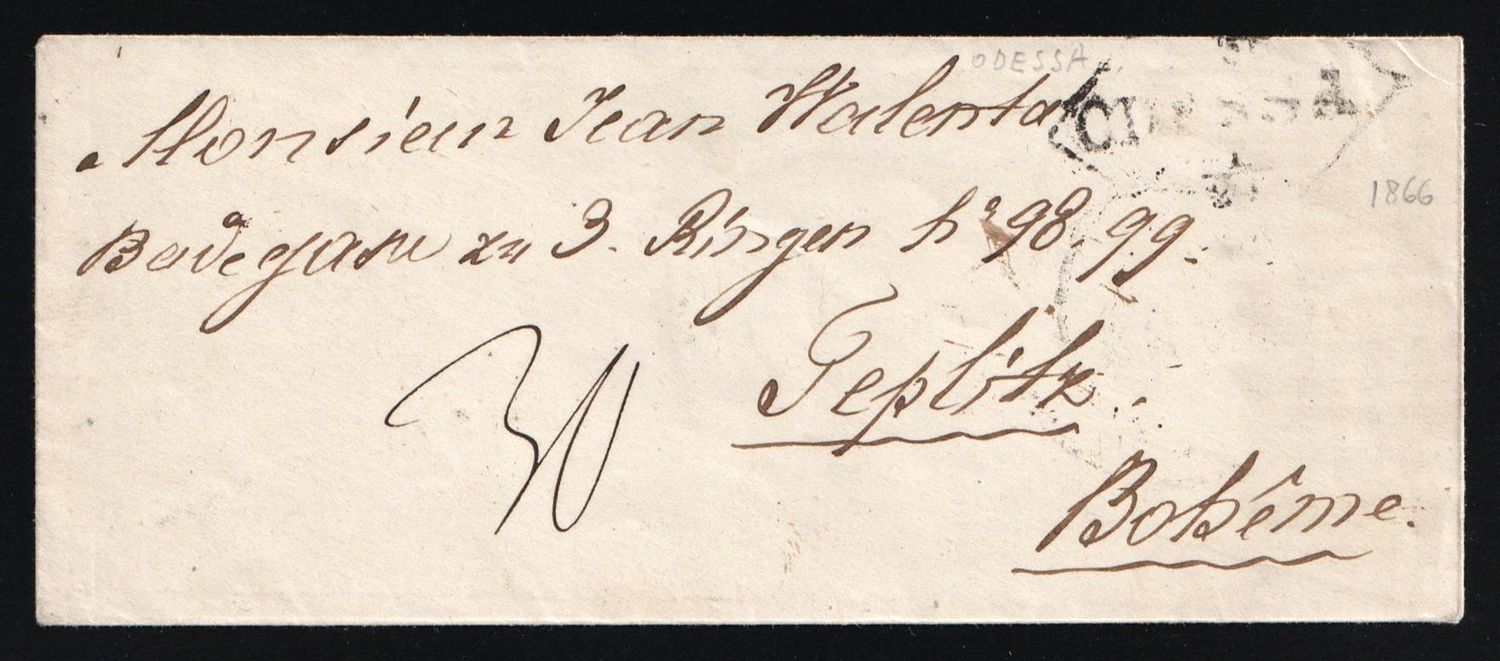 ODESSA
Monsieur Jean Walenta
Badegasse zu 3. Ringen No 98. 99.
1866
30
Teplitz.
Bohême.